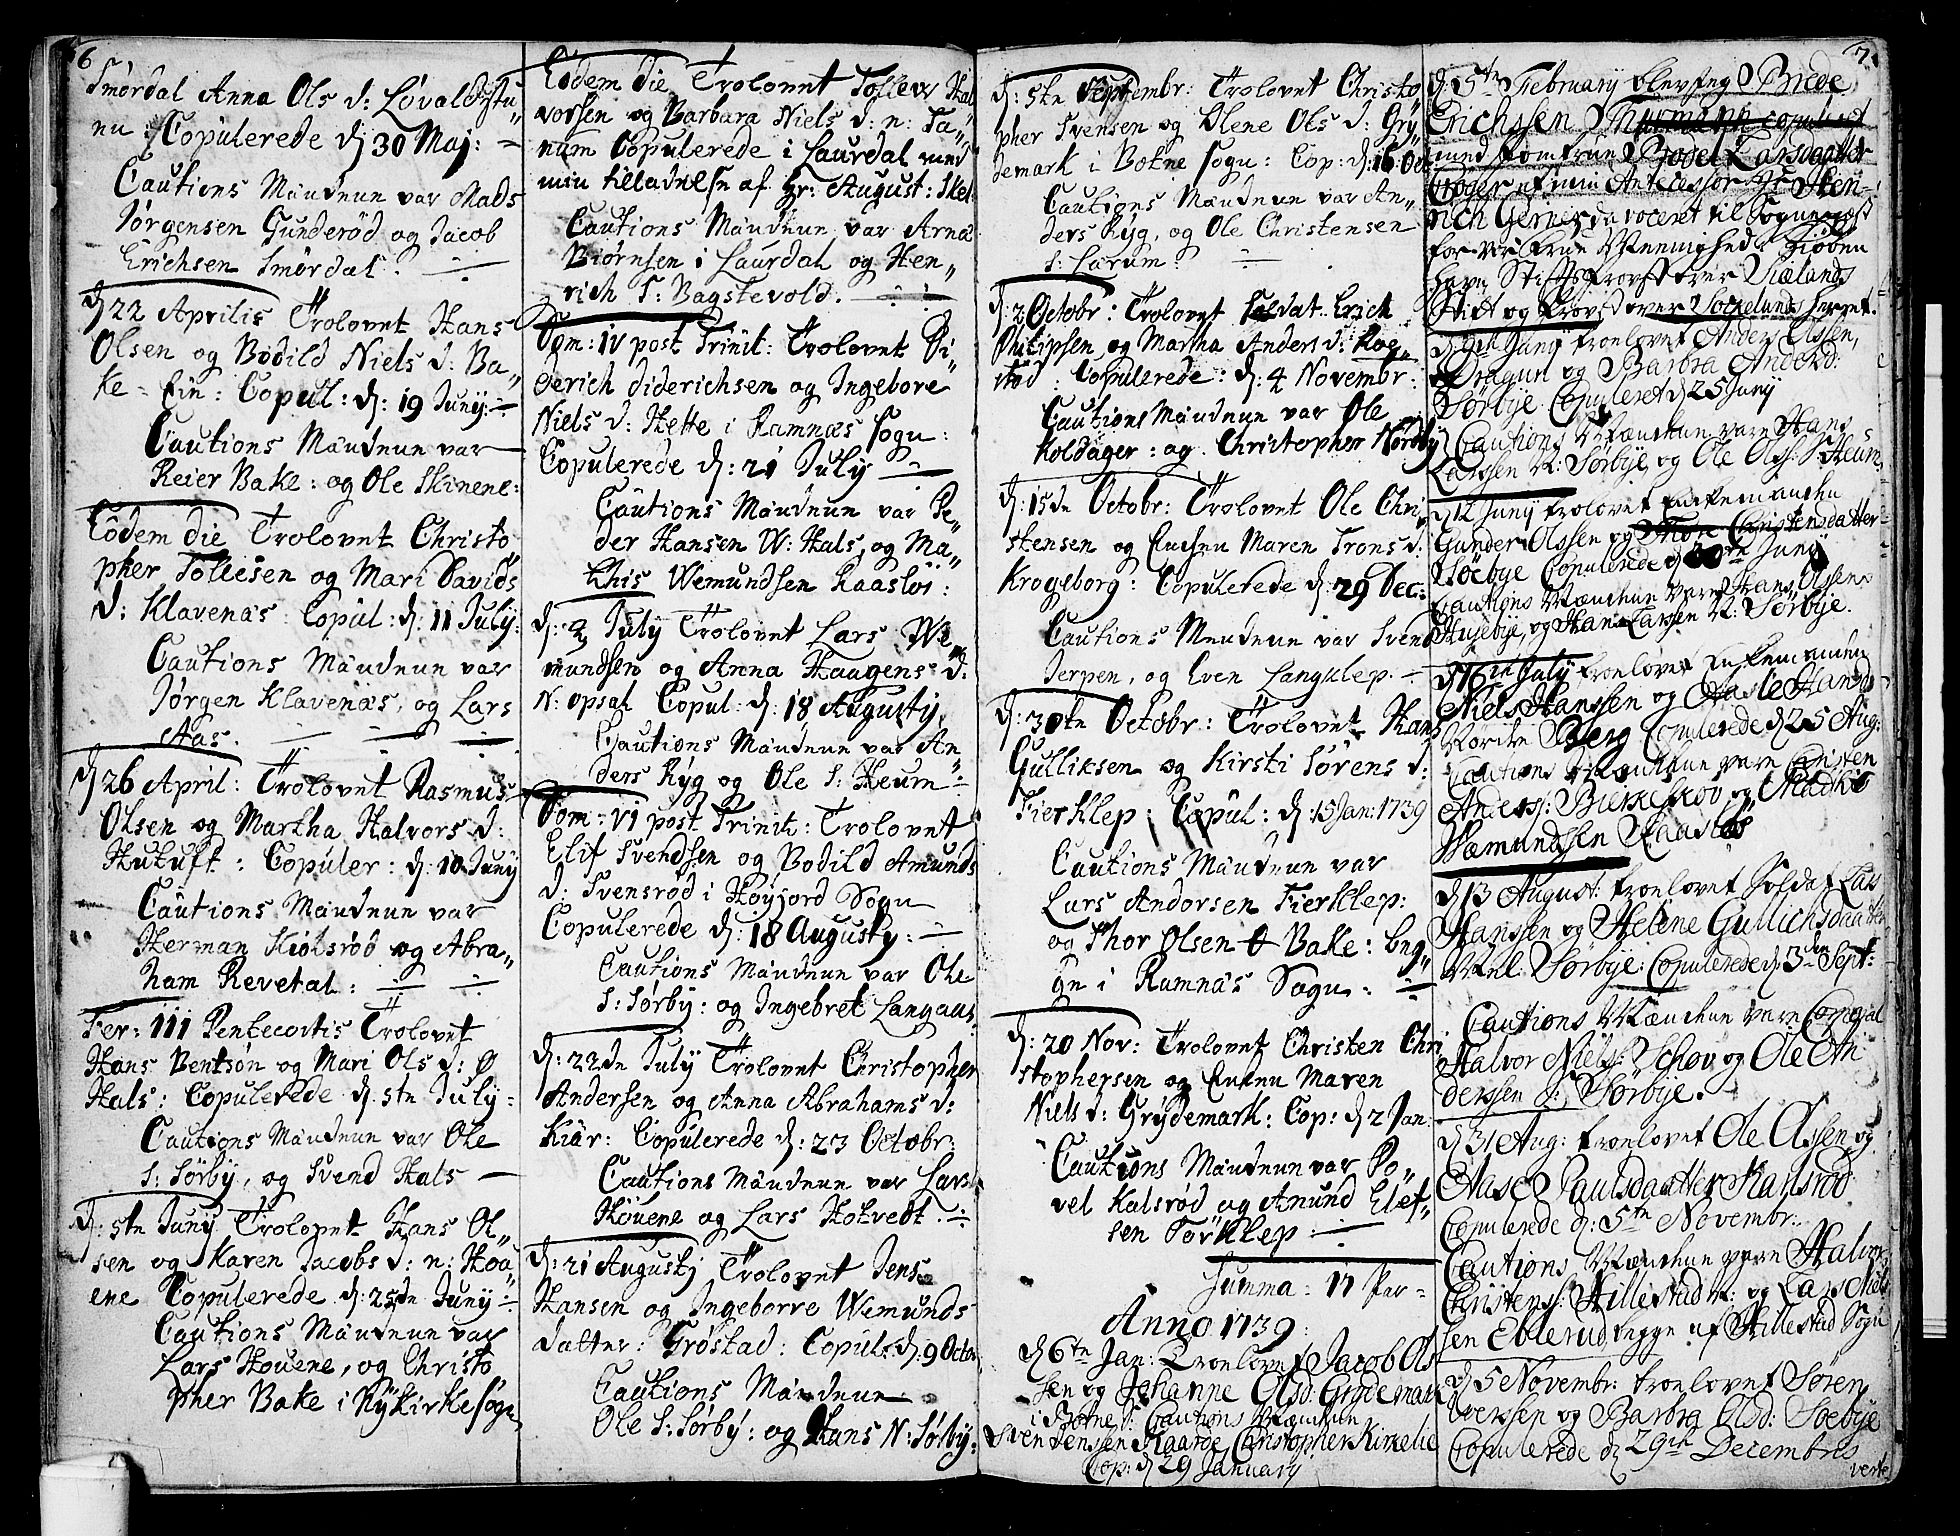 6
Smørdal Anna Ols d: Løvaldstu
nu: Copulerede d: 30 Maj: ÷
Cautions Mændene var Mads
Jørgensen Gunderød og Jacob
Erichsen Smørdal. ÷
d 22 Aprilis Trolovet Hans
Olsen og Bodild Niels d: Ba„
ke - Ein: Copul: d: 19 Junij: ÷
Cautions Mændene var
Reier Bake: og Ole Skinene:
Eodem die Trolovet Christo„
pher Tollesen og Mari Davids
d: Klavenæs Copul: d: 11 July:
Cautions Mændene var
Jørgen Klavenæs, og Lars
Aas. — — ÷
d 26 April: Trolovet Rasmus
Olsen og Martha Halvors d:
Hutuft: Copuler: d: 10 Junij
Cautions Mændene var
Herman Kiølsrød og Abra„
ham Revetal: ÷ ÷
Fer: III Pentecostis Trolovet
Hans Bentsøn og Mari Ols d: Ø
Hals: Copulerede d: 5te July:
Cautions Mændene var Ole
S: Sørby, og Svend Hals —
d: 5te Junij Trolovet Hans Ol„
sen og Karen Jacobs d: n: Hou„
ene Copulerede d: 25de Junij: ÷
Cautions Mændene var
Lars Houene, og Christo
pher Bake i Nykirke sogn
Eodem die Trolovet Tollev Hal
vorsen og Barbara Niels d: n: Ta„
num Copulerede i Laurdal med
min tilladelse af Hr: August: Skel
Cautions Mændene var Arna
Biørnsen i Laurdal og Hen„
rich S: Bagstevold. ÷ ÷
Dom: IV post Trinit: Trolovet Di„
derich Diderichsen og Ingebore
Niels d: Hette i Ramnæs sogn:
Copulerede d: 21 July ÷
Cautions Mændene var Pe„
der Hansen W: Hals, og Ma„
this Wemundsen Raasløs:
d: 2 July Trolovet Lars We
mundsen og Anna Haagens d:
N: opsal Copul: d: 18 Augustij.
Cautions Mændene var An„
ders Ryg og Ole S: Heum ÷
Dom: VI post Trinit: Trolovet
Elif Svendsen og Bodild Amunds
d: Svensrød i Høyjord Sogn
Copulerede d: 18 Augustij: ÷
Cautions Mændene var Ole
S: Sørby: og Ingebret Langaas
d: 22de July Trolovet Christopher
Andersen og Anna Abrahams d:
Kiær: Copulerede d: 23 Octobr:
Cautions Mændene var Lars
Houene og Lars Holvedt. ÷
d: 21 Augustj Trolovet Jens
Hansen og Ingeborre Wemunds
datter: Grøstad: Copul: d: 9 Octob
Cautions Mændene
Ole S: Sørby: og Hans N: Sørby:
d: 5te Septembr: Trolovet Christo
pher Svensen og Olene Ols d: Gry„
demark i Botne sogn: Cop: d: 16 Oct
Cautions Mændene var An„
ders Ryg, og Ole Christensen
S: Larum: ÷
d: 2 Octobr: Trolovet Soldat Erich
Philipsen og Martha Anders d: Rog„
stad: Copulerede: d: 4 Novembr:
Cautions Mændene var Ole
Koldager: og Christopher Nordby
d: 15de Octobr: Trolovet Ole Chri„
stensen og Enchen Maren Trons d:
Krogeborg: Copulerede d: 29 Dec:
Cautions Mændene var Svend
Jerpen, og Even Langklep. ÷
d: 30te Octobr: Trolovet Hans
Gulliksen og Kirsti Sørens d:
Fierklep: Copul: d: 15 Jan: 1739
Cautions Mændene var
Lars Andorsen Fierklep:
og Thor Olsen Ø Bake: Eng„
gn i Ramnæs Sogn: ÷
d: 20 Nov: Trolovet Christen Chri
stophersen og Enken Maren
Niels d: Grydemark: Cop: d 2 Jan:
Cautions Mændene var Po„
vel Kalsrød og Amund Elef„
sen Torklep: ÷
Summa = 17 Par =
Anno 1739:
d 6te Jan: Troelovet Jacob Ols
sen og Johanne Olsd: Grydemark
i Botne S: Cautions Mændene
Svend Jenssen Haarde Christopher Kirkelie
Cop: d 29 January
7.
d: 5te February blev jeg Brede
Erichssen Thurmann copuleret
med Jomfrue Bodel Larsdaatter
Røger af min Antecessor Hr: Hen„
rich Gerner da voceret til Sognepræst
for vor Frue Meenighed i Kiøben
havn Stifts Provst over Siælands
Stift og Provst over Sockelunds Herret.
d 9de Junij troelovet Anders Olssen,
Dragun og Barbra Andersd:
Sørbye Copuleret d 25 Junij
Cautions Mændene vare Hans
Larssen N: Sørbye og Ole Olss: S: Heum
d 12 Junij troelovet Enkemanden
Gunder Olssen og Thore Christensdatter
Søebye Copulerede d 30te Junij
Cautions Mændene vare Hans Olssen
Husebye, og Hans Larsen N. Sørbye.
d 16de July troelovet Enkemanden
Niels Hanssen og Aasle Hansd
Nordre Berg Copulerede d 25 Aug:
Cautions Mændene vare Christen
Anderss: Birkeskov og Madhis
Wæmundssen Raasløs
d 13 August: troelovet Soldat Lars
Hanssen og Helene Gullichsdaatter
Mel: Sørbye: Copulerede d 3den Sept:
Cautions Mændene vare Corporal
Halvor Nielss: Schov og Ole An
derssen S: Sørbye.
d 31 Aug: troelovet Ole Olssen og
Aase Poulsdaatter Kalsrød
Copulerede d: 5te Novembr:
Cautions Mændene vare Halvor
Christenss: Hillestad N: og Lars Niels
sen Eblerud begge af Hillestad Sogn
d 5 Novembr: troelovet Søren
Iverssen og Barbra Olsd: Søebye
Copulerede d 29de Decembris
verte